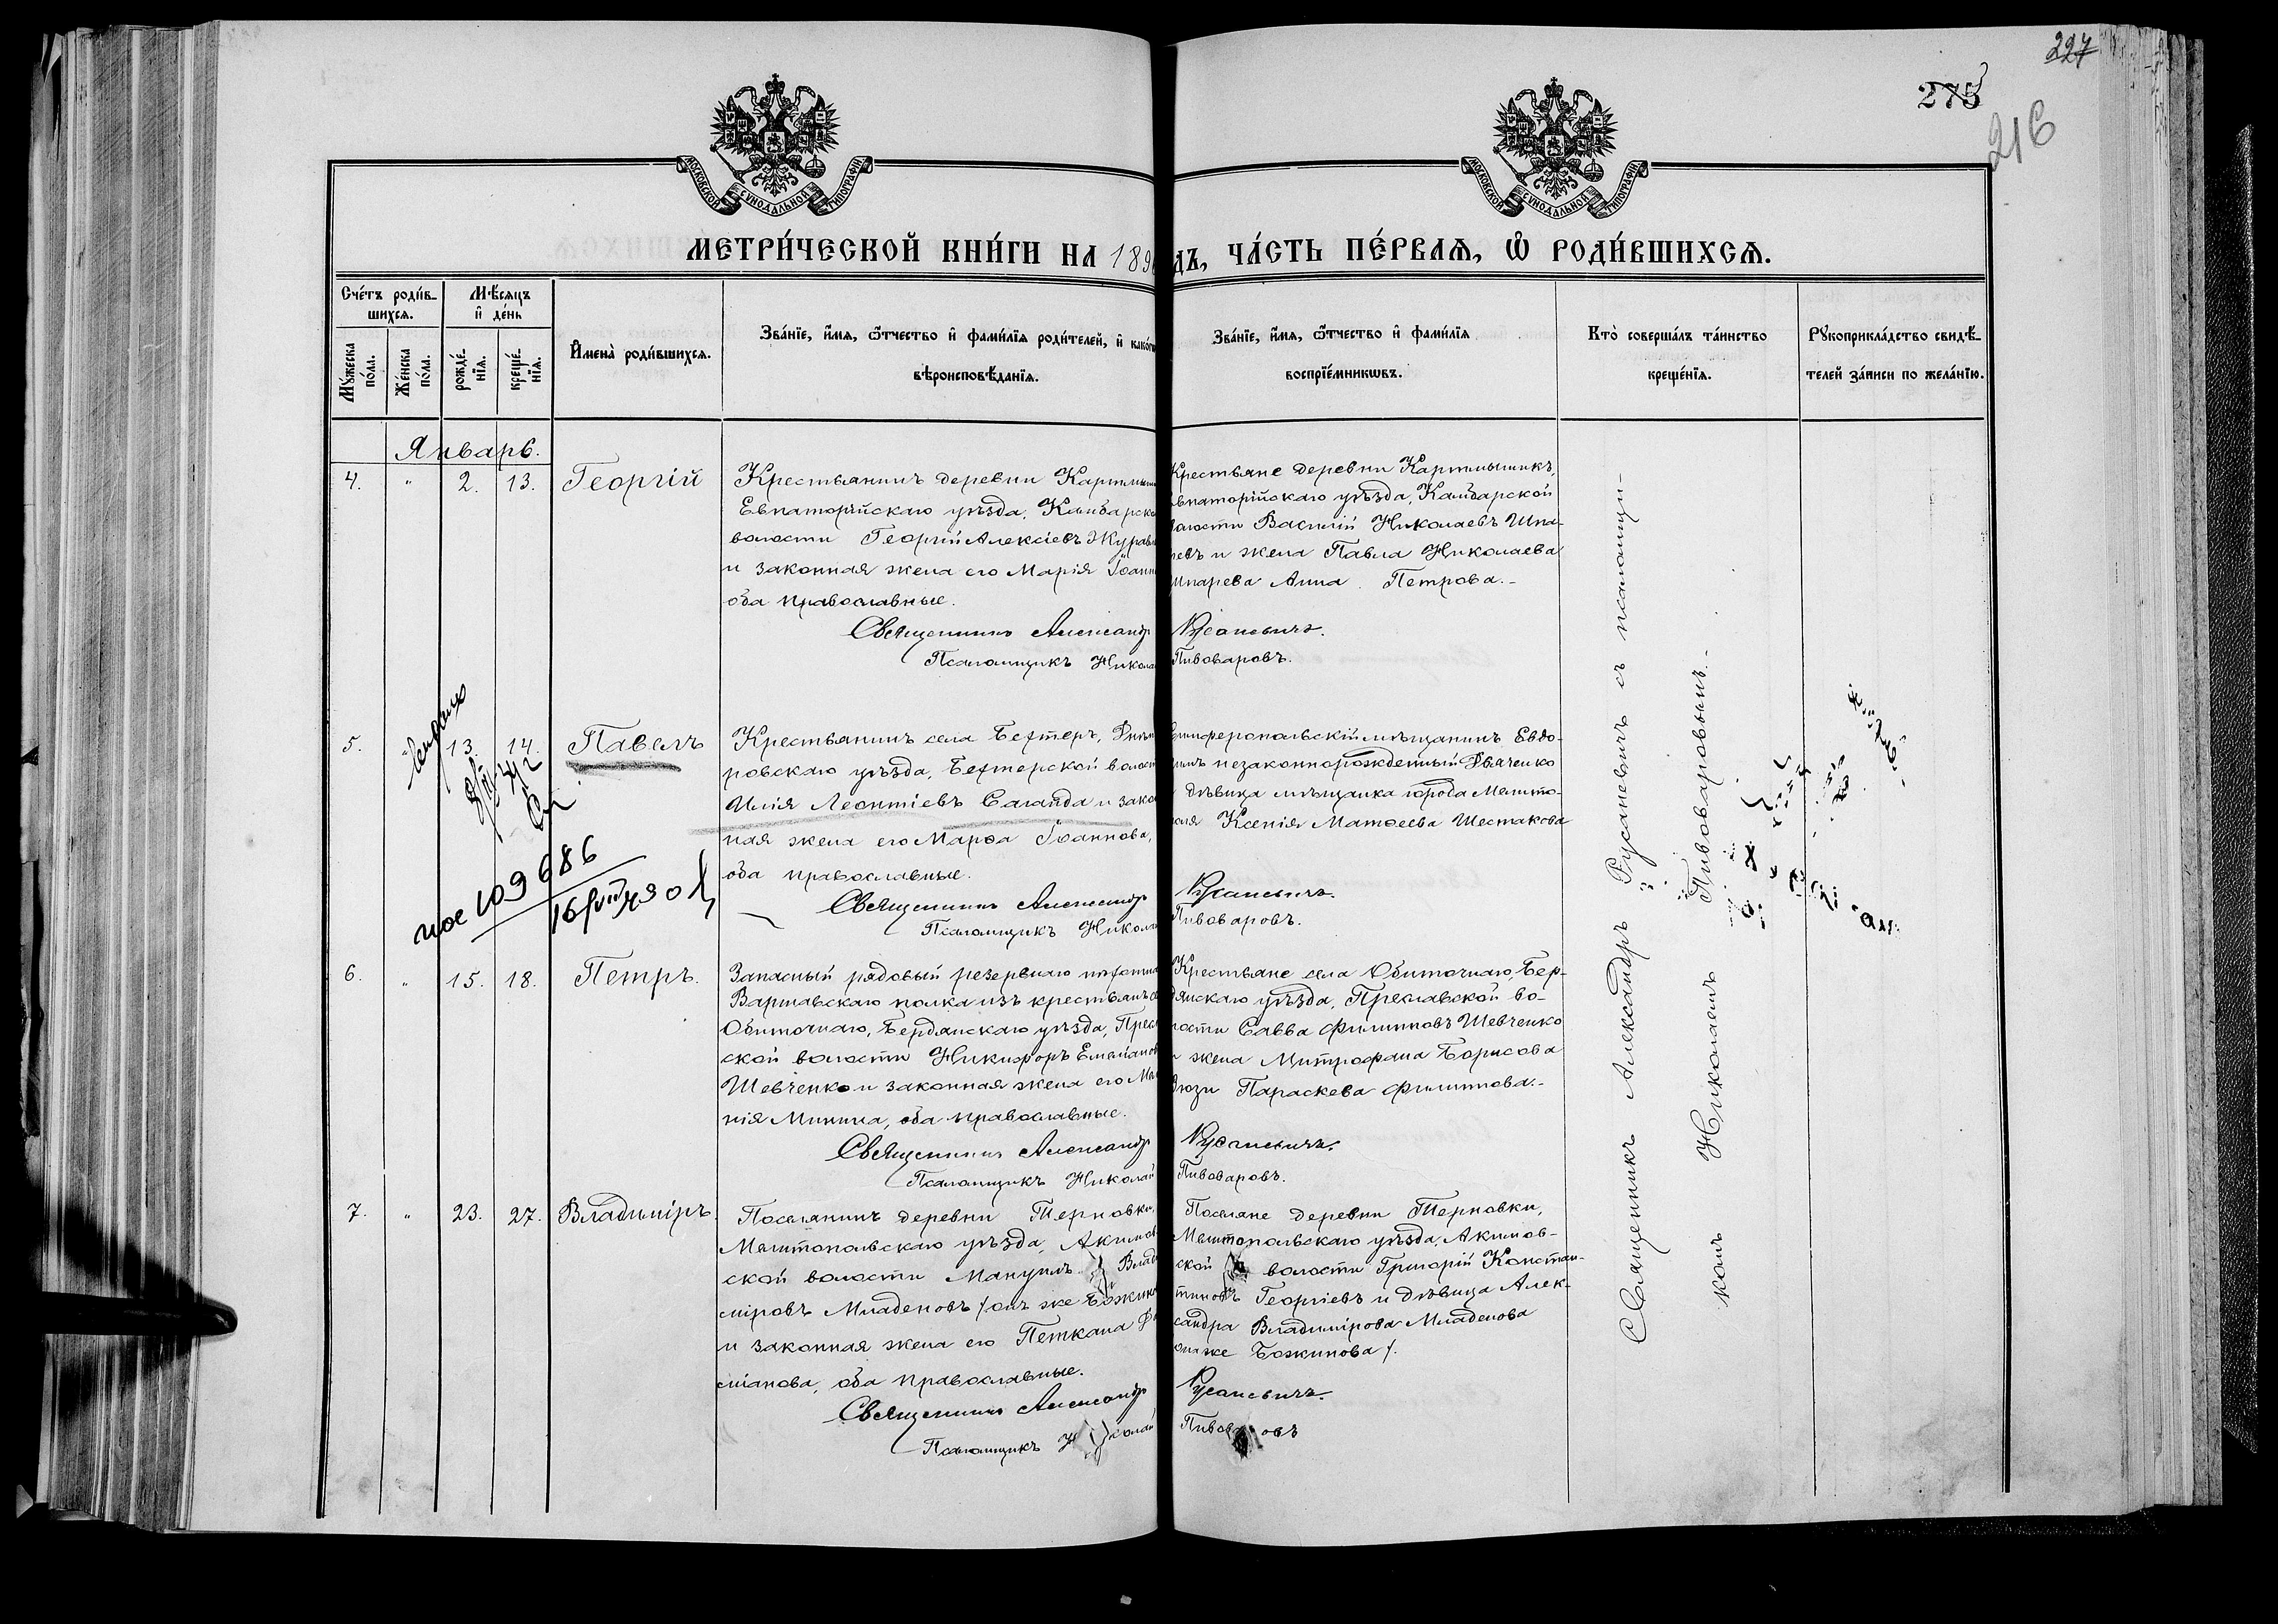 227
275
216
МОСКОВСКОЙ СѴНОДАЛЬНОЙ ТИПОГРАФІИ
МОСКОВСКОЙ СѴНОДАЛЬНОЙ ТИПОГРАФІИ
МЕТРИ́ЧЕСКОЙ КНИ́ГИ НА 189
ДЪ, ЧА́СТЬ ПЕ́РВАѦ, Ѽ РОДИ́ВШИХСѦ.
Сче́тъ роди́в-
шихсѧ.
Мꙋжеска по́ла.
Же́нска по́ла.
Мѣ́сѧцъ
и҆ де́нь
рожде́-
нїѧ.
креще́-
нїѧ.
И҆мена̀ роди́вшихсѧ.
Зва́нїе, и҆́мѧ, ѻ҆́тчество и҆ фами́лїѧ роди́телей, и҆ како́гѡ
вѣроисповѣ́данїѧ.
Зва́нїе, и҆́мѧ, ѻ҆́тчество и҆ фами́лїѧ
воспрїе́мникѡвъ.
Кто̀ соверша́лъ та́инство
креще́нїѧ.
Рꙋкоприкла́дство свидѣ́-
телей за́писи по жела́нїю.
Январь.
4. " 2. 13. Георгій
Крестьянинъ деревни Картмыши
Евпаторійскаго уѣзда, Камбарско
волости Георгій Алексіевъ Журав
и законная жена его Марія Іоанн
оба православные.
Священникъ Александр
Псаломщикъ Никола
Крестьяне деревни Картмышикъ,
Евпаторійскаго уѣзда, Камбарской
волости Василій Николаевъ Шпа-
ревъ и жена Павла Николаева
Шпарева Анна Петрова.-
Русаневичъ.
Пивоваровъ.
5. " 13. 14. Павелъ
Крестьянинъ села Бехтеръ, Днѣп
ровскаго уѣзда, Бехтерской волост
Илія Леонтіевъ Саганда и зако
ная жена его Марѳа Іоаннова,
оба православные.
Священникъ Александр
Псаломщикъ Никола
Симферопольскій мѣщанинъ Евдо-
кимъ незаконнорожденный Дьяченко
и дѣвица мѣщанка города Мелито-
поля Ксенія Матѳеева Шестакова
Русаневичъ.
Пивоваровъ.
109686
6. " 15. 18. Петръ.
Запасный рядовый резервнаго пѣхотна
Варшавскаго полка изъ крестьянъ с
Обиточнаго, Бердянскаго уѣзда, Пресл
ской волости Никифоръ Емеліанов
Шевченко и законная жена его Мел
нія Минина, оба православные.
Священникъ Александр
Псаломщикъ Николай
Крестьяне села Обиточнаго, Бер-
дянскаго уѣзда, Преславской во-
лости Савва Филипповъ Шевченко
и жена Митрофана Борисова
Параскева Филиппова.-
Русаневичъ.
Пивоваровъ.
7. " 23. 27. Владиміръ.
Поселянинъ деревни Терновки,
Мелитопольскаго уѣзда, Акимов
ской волости Мануилъ Влад
міровъ Младеновъ /онъ же Божин
и законная жена его Петкана
сианова, оба православные.
Священникъ Александр
Псаломщикъ Николай
Поселяне деревни Терновки,
Мелитопольскаго уѣзда, Акимов-
ской волости Григорій Констан-
тиновъ Георгіевъ и дѣвица Алек-
сандра Владимірова Младенова
она же Божинова/.
Русаневичъ.
Пивоваровъ
Священникъ Александръ Русаневичъ съ псаломщи-
комъ Николаемъ Пивоваровымъ.-